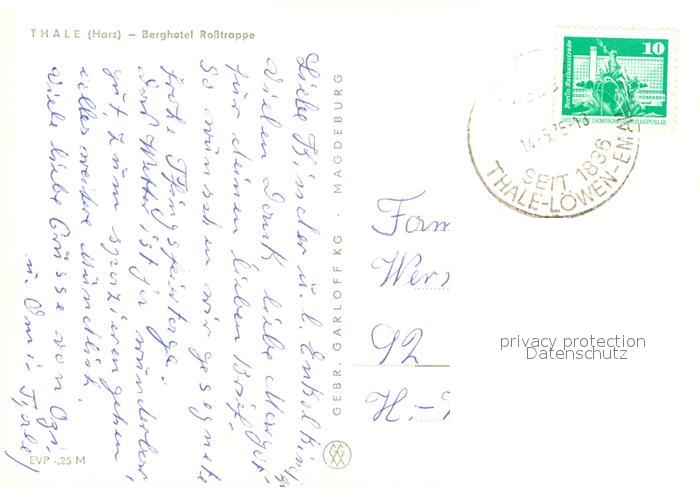 THALE (Harz) – Berghotel Roßtrappe
Liebe Kinder u. l. Enkelkinder
Vielen Dank liebe Margot
für deinen lieben Brief.
So wünschen wir gesegnete
frohe Pfingstfeiertage.
Das Wetter ist ja wunderbar
gut, zum spazieren gehen,
alles weitere mündlich.
Viele liebe Grüsse von Opi
u. Omi
EVP -,25 M
GEBR. GARLOFF KG · MAGDEBURG
10
Berlin-Rathausstraße
SEIT 1836
THALE-LÖWEN-EMA
Fam
Wer
92
H.-
privacy protection
Datenschutz